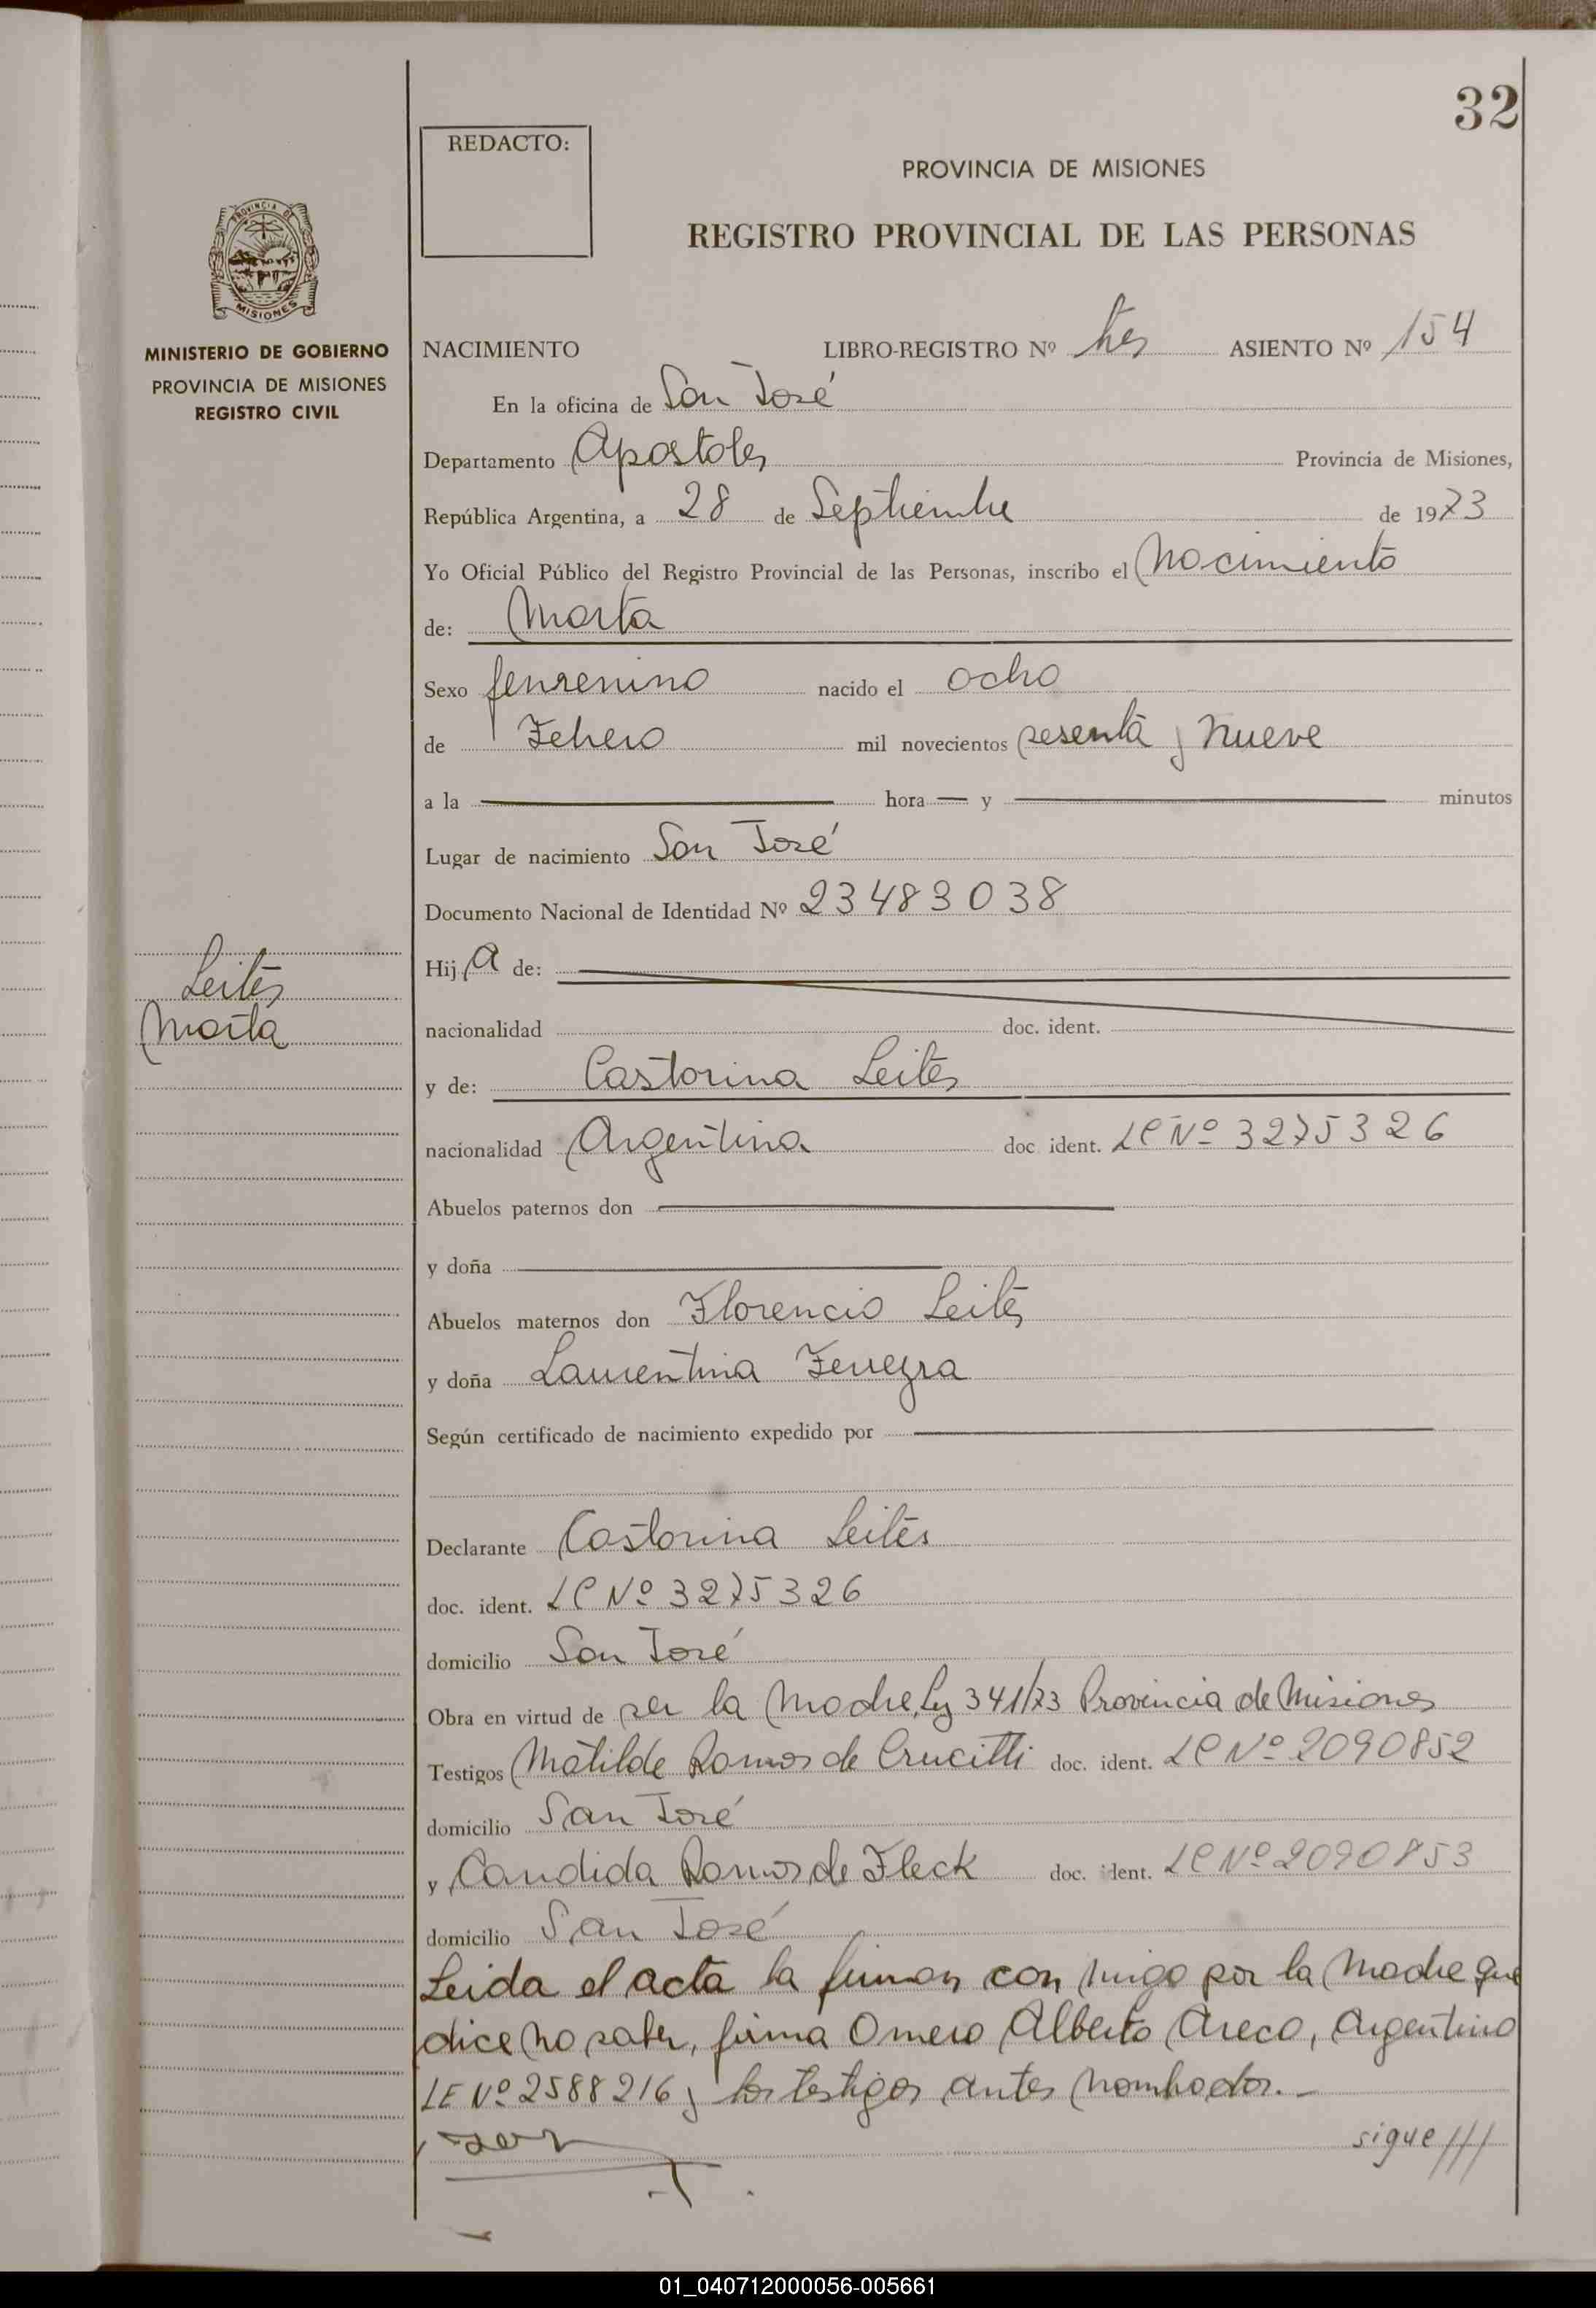 32
REDACTO:
PROVINCIA DE MISIONES
REGISTRO PROVINCIAL DE LAS PERSONAS
PROVINCIA DE
MISIONES
MINISTERIO DE GOBIERNO
PROVINCIA DE MISIONES
REGISTRO CIVIL
NACIMIENTO LIBRO-REGISTRO Nº tres ASIENTO Nº 154
En la oficina de San José
Departamento Apostoles Provincia de Misiones,
República Argentina, a 28 de Septiembre de 1973
Yo Oficial Público del Registro Provincial de las Personas, inscribo el Nacimiento
de: Marta
Sexo femenino nacido el ocho
de Febrero mil novecientos sesenta y nueve
a la hora y minutos
Lugar de nacimiento San José
Documento Nacional de Identidad Nº 23483038
Hij A de:
Leites
Marta
nacionalidad doc. ident.
y de: Castorina Leites
nacionalidad Argentina doc ident. LC Nº 3275326
Abuelos paternos don
y doña
Abuelos maternos don Florencio Leites
y doña Laurentina Ferreyra
Según certificado de nacimiento expedido por
Declarante Castorina Leites
doc. ident. LC Nº 3275326
domicilio San José
Obra en virtud de ser la Madre, Ley 341/73 Provincia de Misiones
Testigos Matilde Ramos de Crucitti doc. ident. LC Nº 2090852
domicilio San José
y Candida Ramos de Fleck doc. ident. LC Nº 2090853
domicilio San José
Leida el acta la firman con migo por la Madre que
dice no saber, firma Omero Alberto Areco, Argentino
LE Nº 2588216 y los testigos antes nombrados.-
sigue ///
01_040712000056-005661